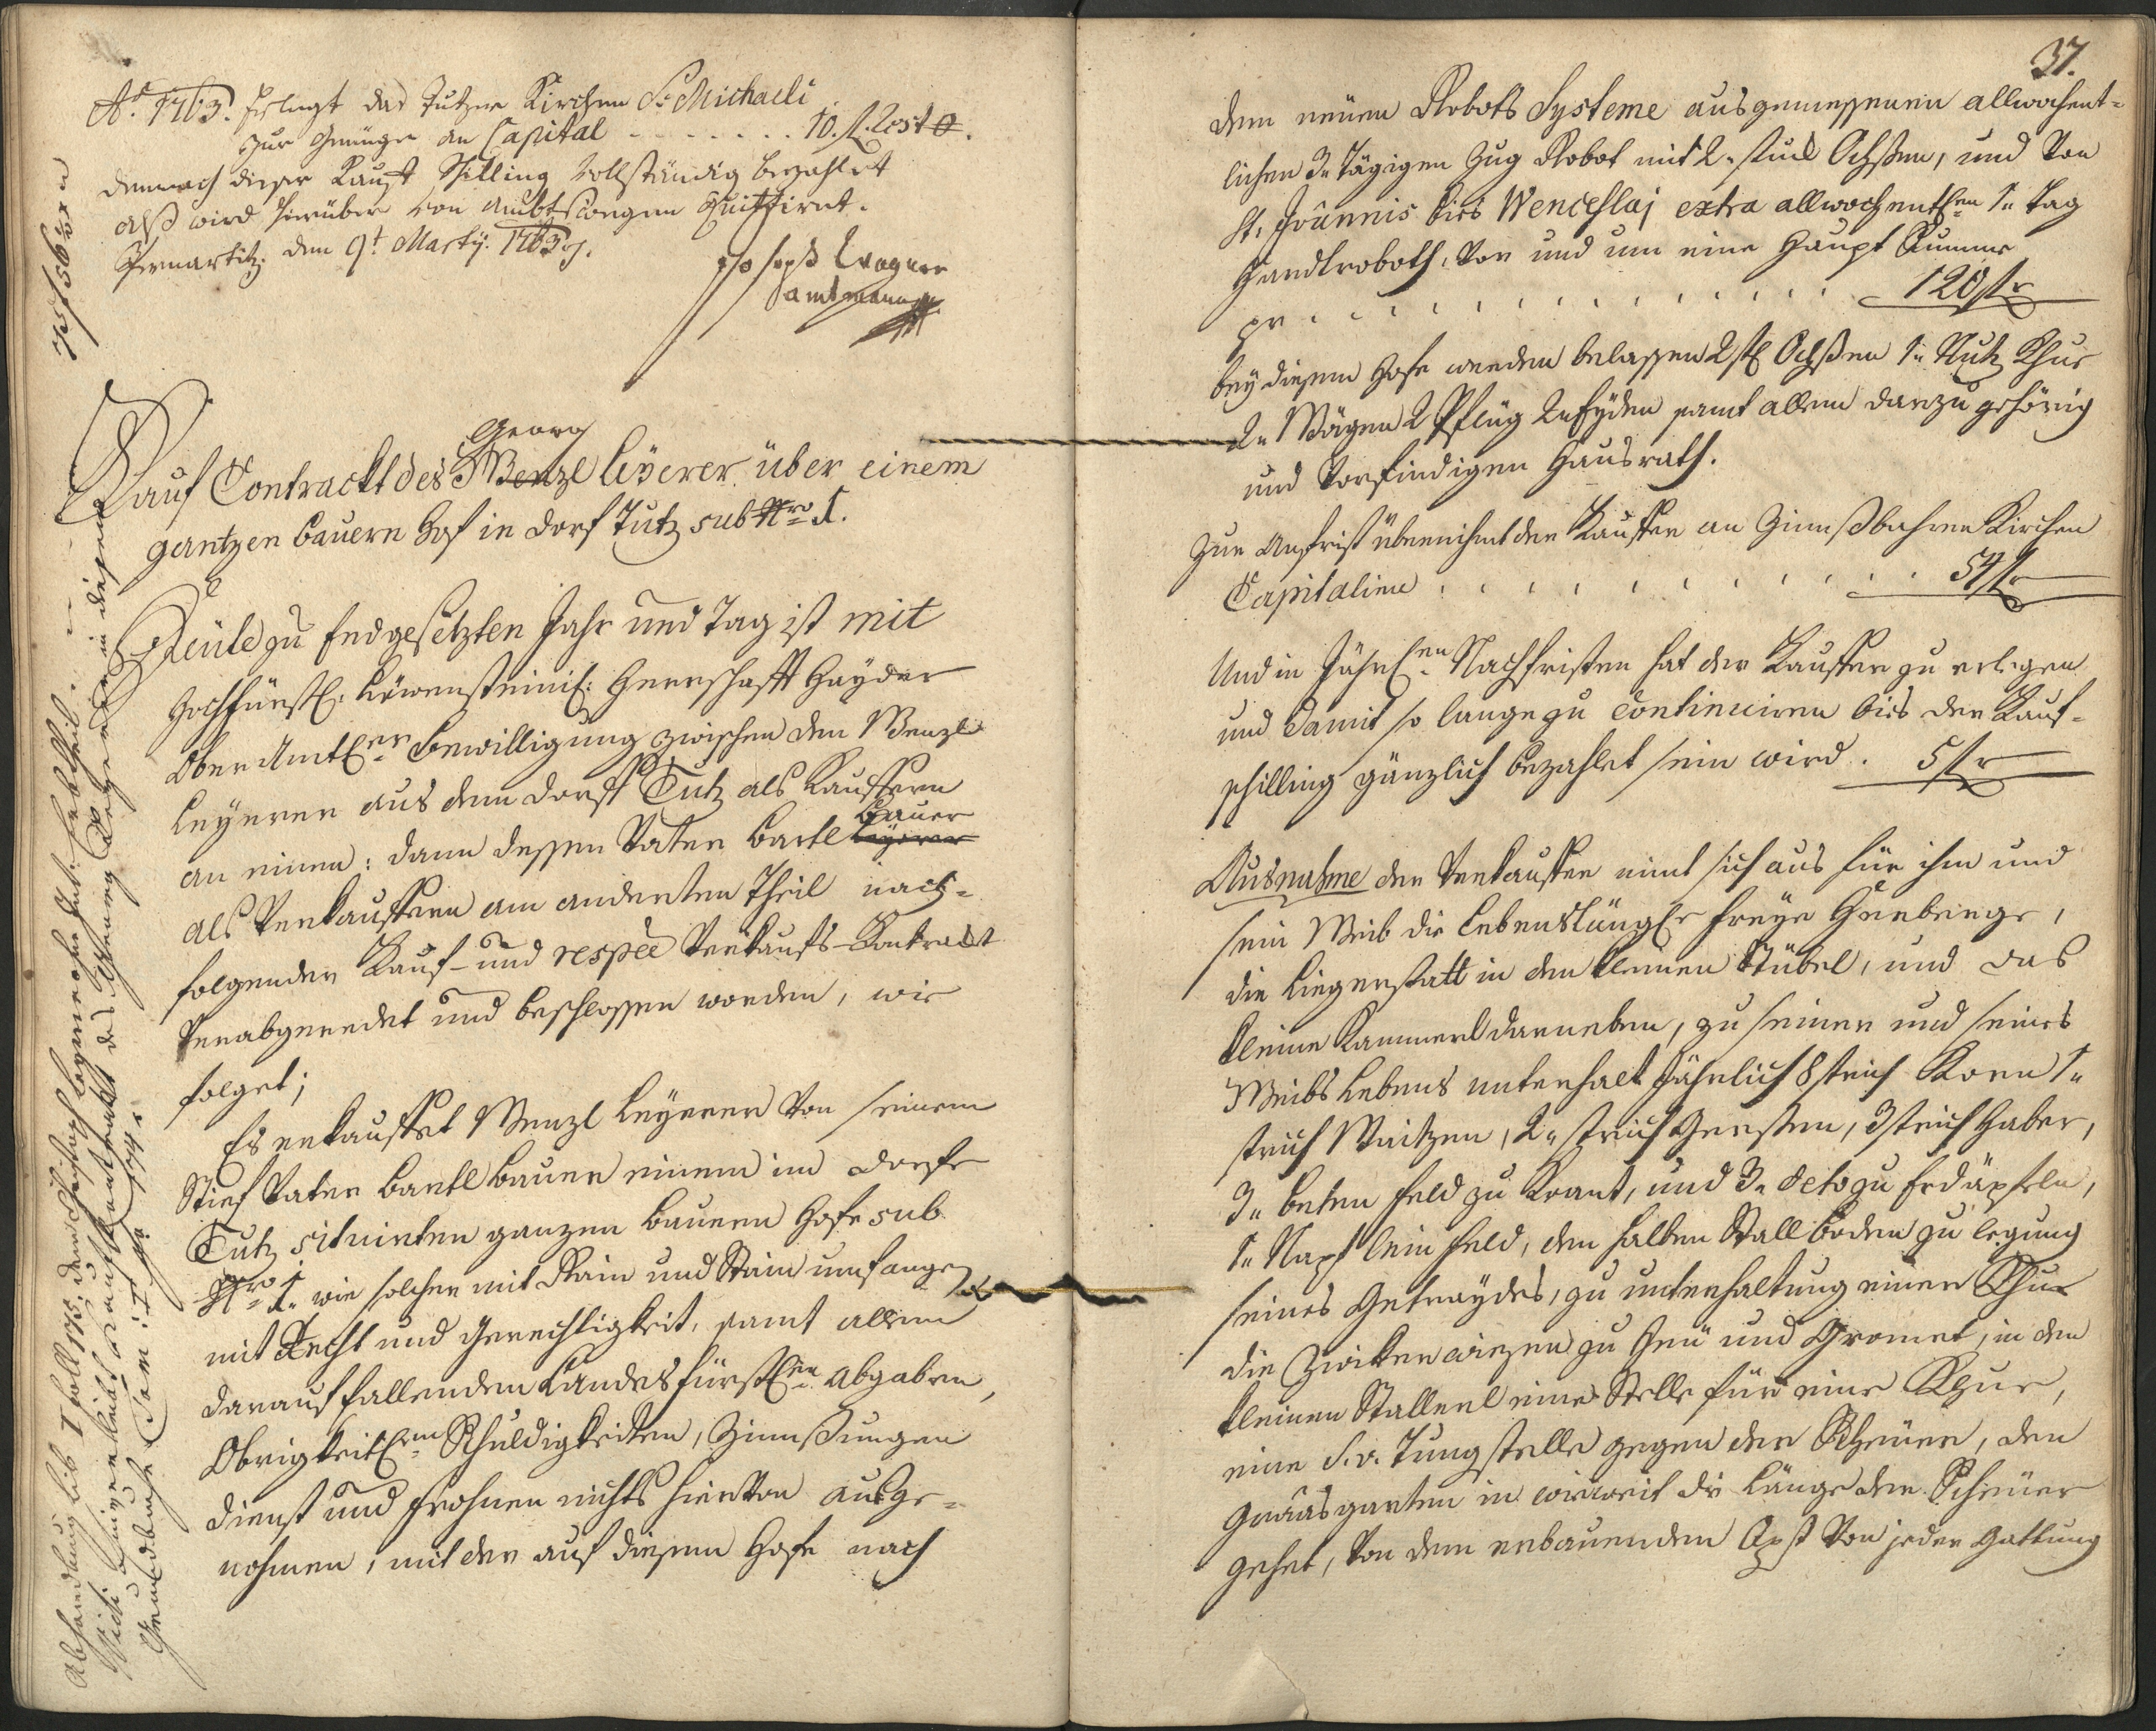 Aº 1763. Erlegt das Tutzer Kirchen St. Michaeli
zur Genüge an Capital - - - - - - - 10. fl. Rest 0.
Demnach dieser Kauf Schilling vollständig bezahlet
alß wird hierüber von Ambtswegen Quittiret.
Pernartitz den 9t Martÿ: 1763.
Joseph Wagner
amtmann
Kauf Contrackt des Georg Wenzl Leÿerer über einem
gantzen Bauern Hof in Dorf Tutz sub Nro 1.
Heüte zu Endgesetzten Jahr und Tag ist mit
Hochfürstl: Löwensteinis: Herrschafft Haÿder
Oberamtler Bewilligung zwischen dem Wenzl
Leÿerer aus dem Dorff Tutz als Kauffern
an einem: dann dessen Vater Bartl Leÿerer Bauer
als Verkauffern am anderten Theil nach-
folgender Kauf- und respee Verkaufs-Kontrackt
verabgeredet und beschlossen worden, wie
folget;
Es erkauffet Wenzl Leÿerer von seinem
Stief Vater Bartl Bauer einem im Dorfe
Tutz situirten ganzen Bauern Hofe sub
Nro 1. wie solcher mit Rain und Stain umfangen
mit Recht und Gerechtigkeit, samt allem
darauf fallendem Landesfürstlen Abgaben,
Obrigkeitlen Schuldigkeiten, Zinnßungen
Dienst und Frohnen nichts hiervon ausge-
nohmen, mit der auf diesem Hofe nach
37.
dem neüen Robots Systeme ausgemessenen allwochent-
lichen 3. Tägigen Zug Robot mit 2. stück Ochßen, und von
St. Joannis bies Wenceslaj extra allwochentlen 1. Tag
Handlroboth, vor und um eine Haupt Summe
pr . . . . . . . . . . . . . . 120 fl
beÿ diesem Hofe werden belassen 2 stk Ochßen 1. Nutz Khue
2. Wägen 2 Pflüg 2. Eÿden samt allem darzu gehörig
und vorfindigen Hausrath.
Zur Anfrist übernihmt der Kauffer an Zinnßbahren Kirchen
Capitalien . . . . . . . . . . . 54 fl
Und in Jährlen Nachfristen hat der Kauffer zu erlegen
und damit so lange zu Continuiren bies der Kauf-
schilling gänzlich bezahlet sein wird. 5 fl
Ausnahme der Verkauffer nimt sich aus für ihm und
sein Weib die Lebenslängle freÿe Herberge,
die Liegerstatt in dem kleinen Stübel, und das
kleine Kammerl darneben, zu seiner und seines
Weibs Lebens unterhalt Jährlich 8 strich Korn 1.
strich Waitzen, 2. strich Gersten, 3 strich Haber,
3. Beten Feld zu Kraut, und 3. deto zu Erdäpfeln,
1. Napf Lein Feld, den halben Stall boden zu legung
seines Getraÿdes, zu unterhaltung einer Khue
die Zwikerwiezen zu Heü und Gromet, in dem
kleinen Stallerl eine Stelle für eine Khue,
eine S. v. Tungstelle gegen der Scheüer, den
Graasgarten in wieweit die Länge der Scheüer
gehet, von dem erbauenden Obst von jeder Gattung